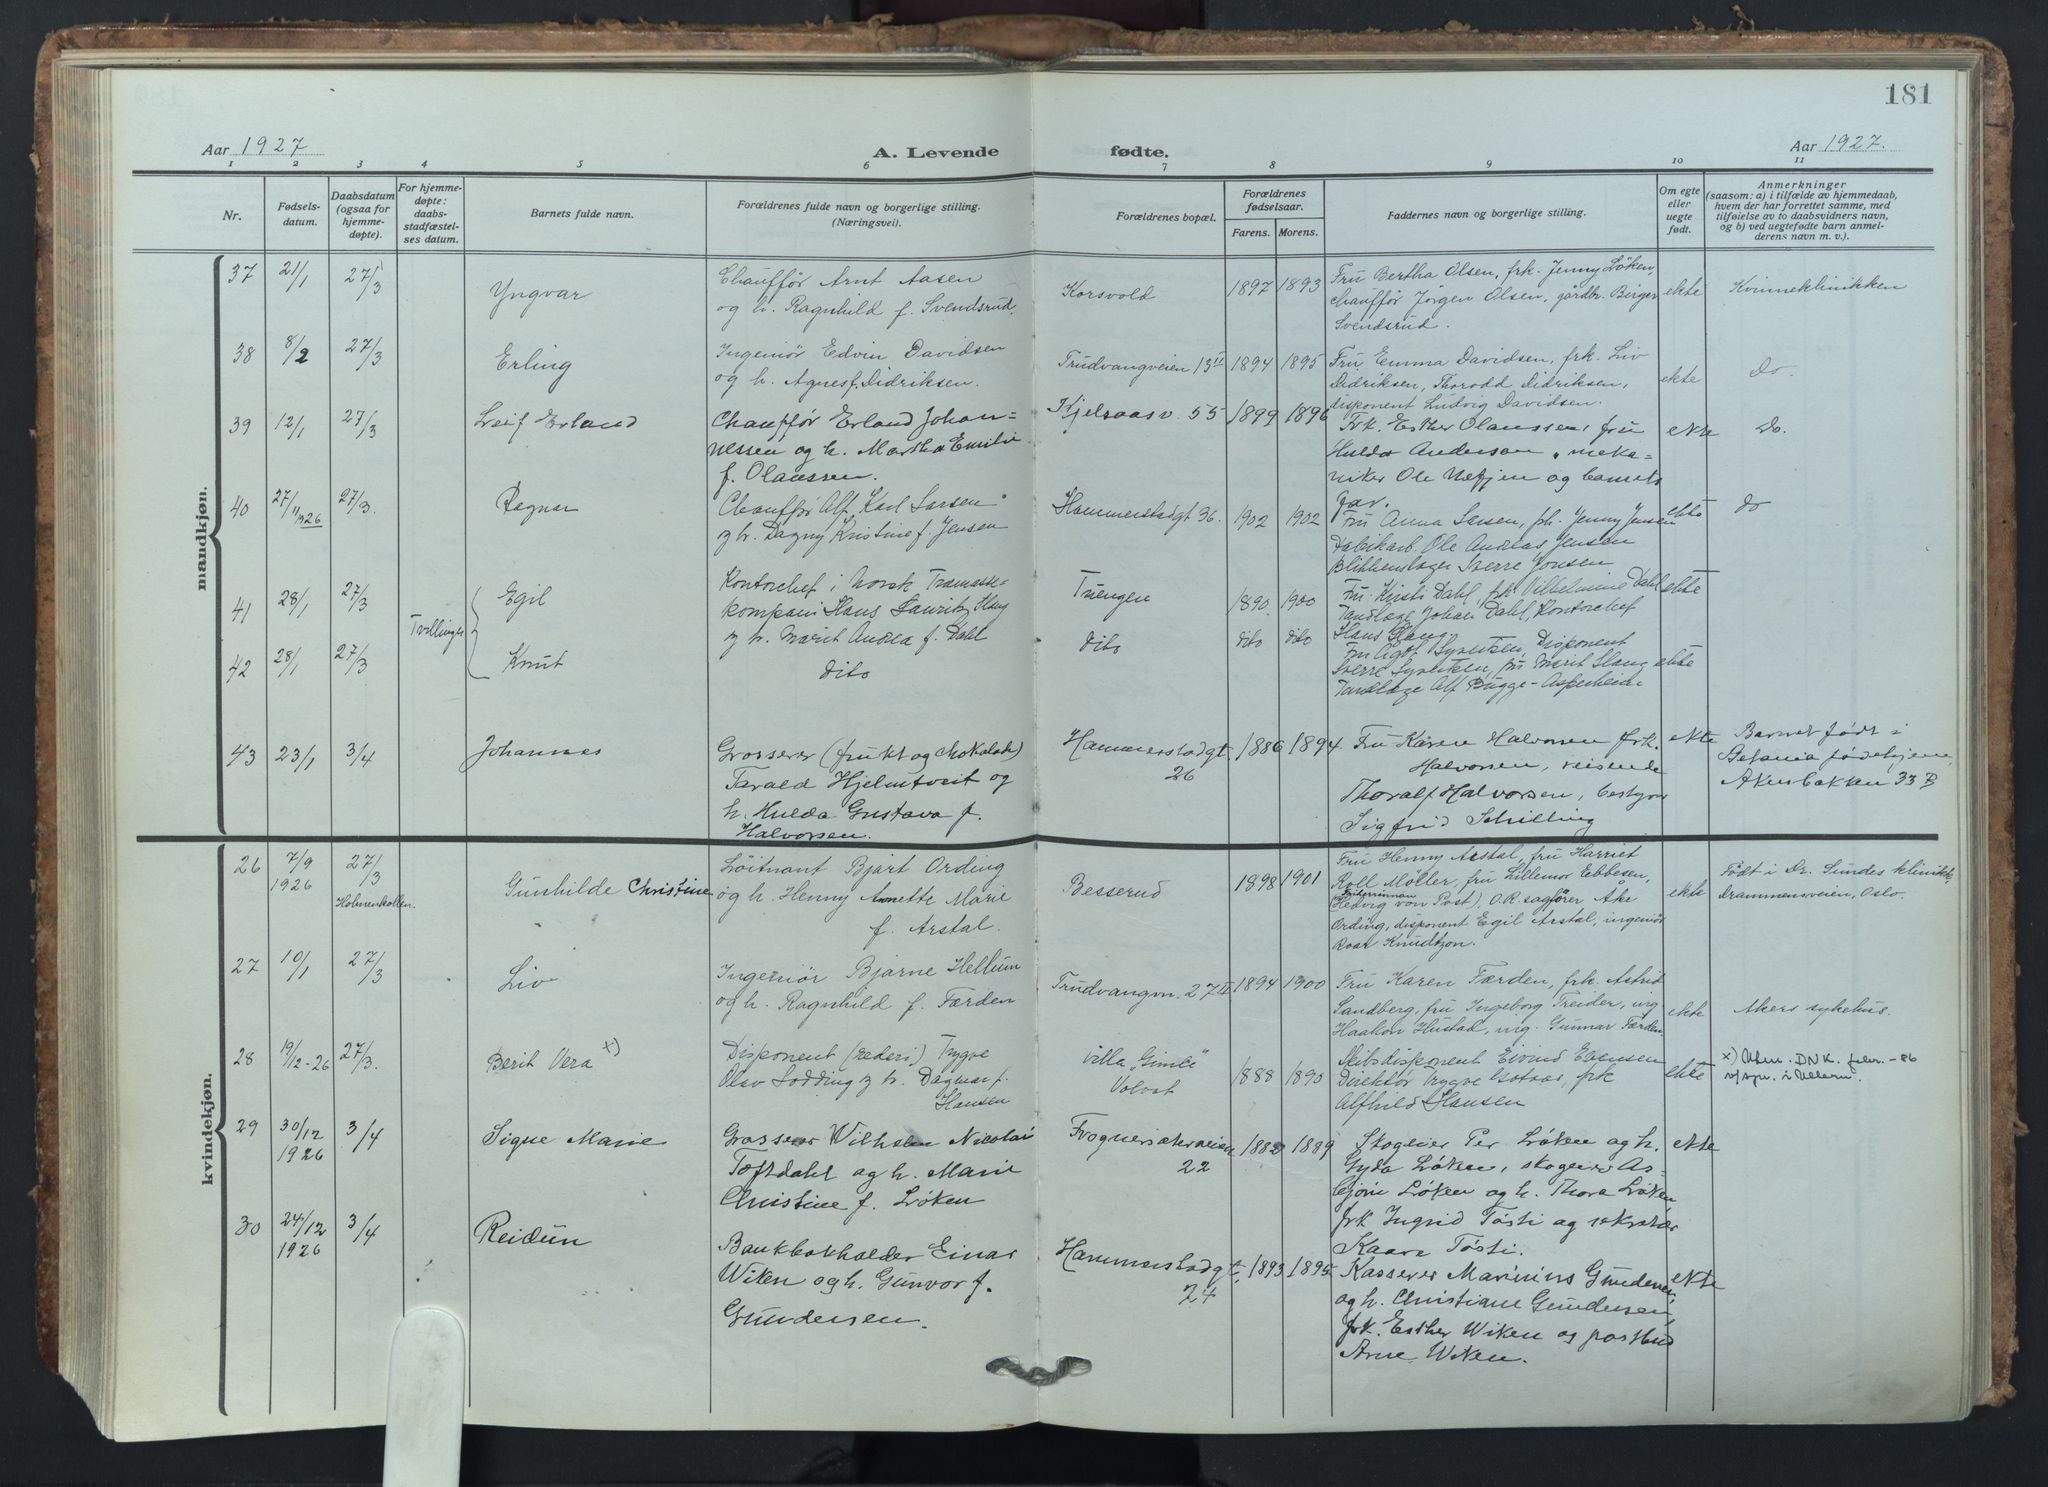 181
Aar 1927
A. Levende fødte.
Aar 1927.
1 2 3 4 5 6 7 8 9 10 11
Nr.
Fødsels-
datum.
Daabsdatum
(ogsaa for
hjemme-
døpte).
For hjemme-
døpte:
daabs-
stadfæstel-
ses datum.
Barnets fulde navn.
Forældrenes fulde navn og borgerlige stilling.
(Næringsvei).
Forældrenes bopæl.
Forældrenes
fødselsaar.
Farens. Morens.
Faddernes navn og borgerlige stilling.
Om egte
eller
uegte
født.
Anmerkninger
(saasom: a) i tilfælde av hjemmedaab,
hvem der har forrettet samme, med
tilføielse av to daabsvidners navn,
og b) ved uegtefødte barn anmel-
derens navn m. v.).
mandkjøn.
37 21/1 27/3 Yngvar
Chauffør Arnt Aasen
og h. Ragnhild f. Svendsrud.
Korsvold 1897 1893
Fru Bertha Olsen, frk. Jenny Løken,
chauffør Jørgen Olsen, gårdbr. Birger
Svendsrud.
ekte Kvinneklinikken
38 8/2 27/3 Erling
Ingeniør Edvin Davidsen
og h. Agnes f. Didriksen.
Trudvangveien 13 II 1894 1895
Fru Emma Davidsen, frk. Liv
Didriksen, Thorodd Didriksen,
disponent Ludvig Davidsen.
ekte Do.
39 12/1 27/3 Leif Erland
Chauffør Erland Johan=
nessen og h. Martha Emilie
f. Olaussen.
Kjelsaasv. 55 1899 1896
Frk. Esther Olaussen, fru
Hulda Anderson, meka=
niker Ole Nefjen og barnets
far.
ekte Do.
40 27/11 1926 27/3. Ragnar
Chauffør Alf Karl Larsen
og h. Dagny Kristine f. Jensen
Hammerstadgt 36. 1902 1902
Fru Anna Larsen, frk. Jenny Jensen
Fabrikarb. Ole Andreas Jensen
Blikkenslager Sverre Jonsen
ekte do
41 28/1 27/3 Tvillinger Egil
Kontorchef i Norsk Tramasse-
kompani Hans Lauritz Haug
og h. Marit Andrea f. Dahl
Tuengen 1890. 1900
Fru Kristi Dahl, frk Vilhelmine Dahl
Tandlæge Johan Dahl, Kontorchef
Hans Haug
ekte
42 28/1 27/3 Knut
dito
dito dito dito
Fru Agot Syvertsen, Disponent
Sverre Syvertsen, fru Marit Haug
Tandlæge Alf Bugge-Asperheim.
ekte
43 23/1 3/4 Johannes
Grosserer (frukt og chokolade)
Tarald Hjelmtveit og
h. Hulda Gustava f.
Halvorsen.
Hammerstadgt. 26 1886 1894
Fru Karen Halvorsen frk.
Halvorsen, reisende
Thoralf Halvorsen, bestyrer
Sigfrid Schilling
ekte
Barnet født i
Betania fødehjem,
Akersbakken 33 B
kvindekjøn.
26 7/9 1926 27/3 Holmenkollen Gunhilde Christine
Løitnant Bjart Ording
og h. Henny Annette Marie
f. Arstal.
Besserud 1898 1901
Fru Henny Arstal, fru Harriet
Roll Møller, fru Lillemor Ebbesen,
Hedvig von Post). O.R. sagfører Åke
Ording, disponent Egil Arstal, ingeniør
Roar Knudtzon.
ekte
Født i Dr. Sundes klinikk,
Drammensveien, Oslo.
27 10/1 27/3 Liv
Ingeniør Bjarne Hellum
og h. Ragnhild f. Færden
Trudvangvn. 27 II 1894 1900
Fru Karen Færden, frk. Astrid
Sandberg, fru Ingeborg Treider, ing
Haakon Hustad, ing. Gunnar Færden.
ekte Akers sykehus.
28 19/12-26 27/3. Berit Vera x)
Disponent (rederi) Trygve
Olav Lodding og h. Dagmar f.
Hansen
Villa "Gimle"
Volvat 1888 1890
Skibsdisponent Eivind Evensen
Direktør Trygve Gotaas, frk
Alfhild Hansen
ekte
x) Utm. DNK. febr. -86
v/spr. i Ullern.
29 30/12 1926 3/4 Signe Marie
Grosserer Wilhelm Nicolai
Toftdahl og h. Marie
Christine f. Løken
Frognersæterveien
22 1882 1889
Skogeier Per Løken og h.
Gyda Løken, skogeier As-
bjørn Løken og h. Thora Løken,
frk Ingrid Tosti og sekretær
Kaare Tosti.
ekte
30 24/12 1926 3/4 Reidun
Bankbokholder Einar
Wiken og h. Gunvor f.
Gundersen.
Hammerstadgt.
24 1893 1895
Kasserer Marinius Gundersen
og h. Christiane Gundersen,
frk. Esther Wiken og postbud
Arne Wiken.
ekte